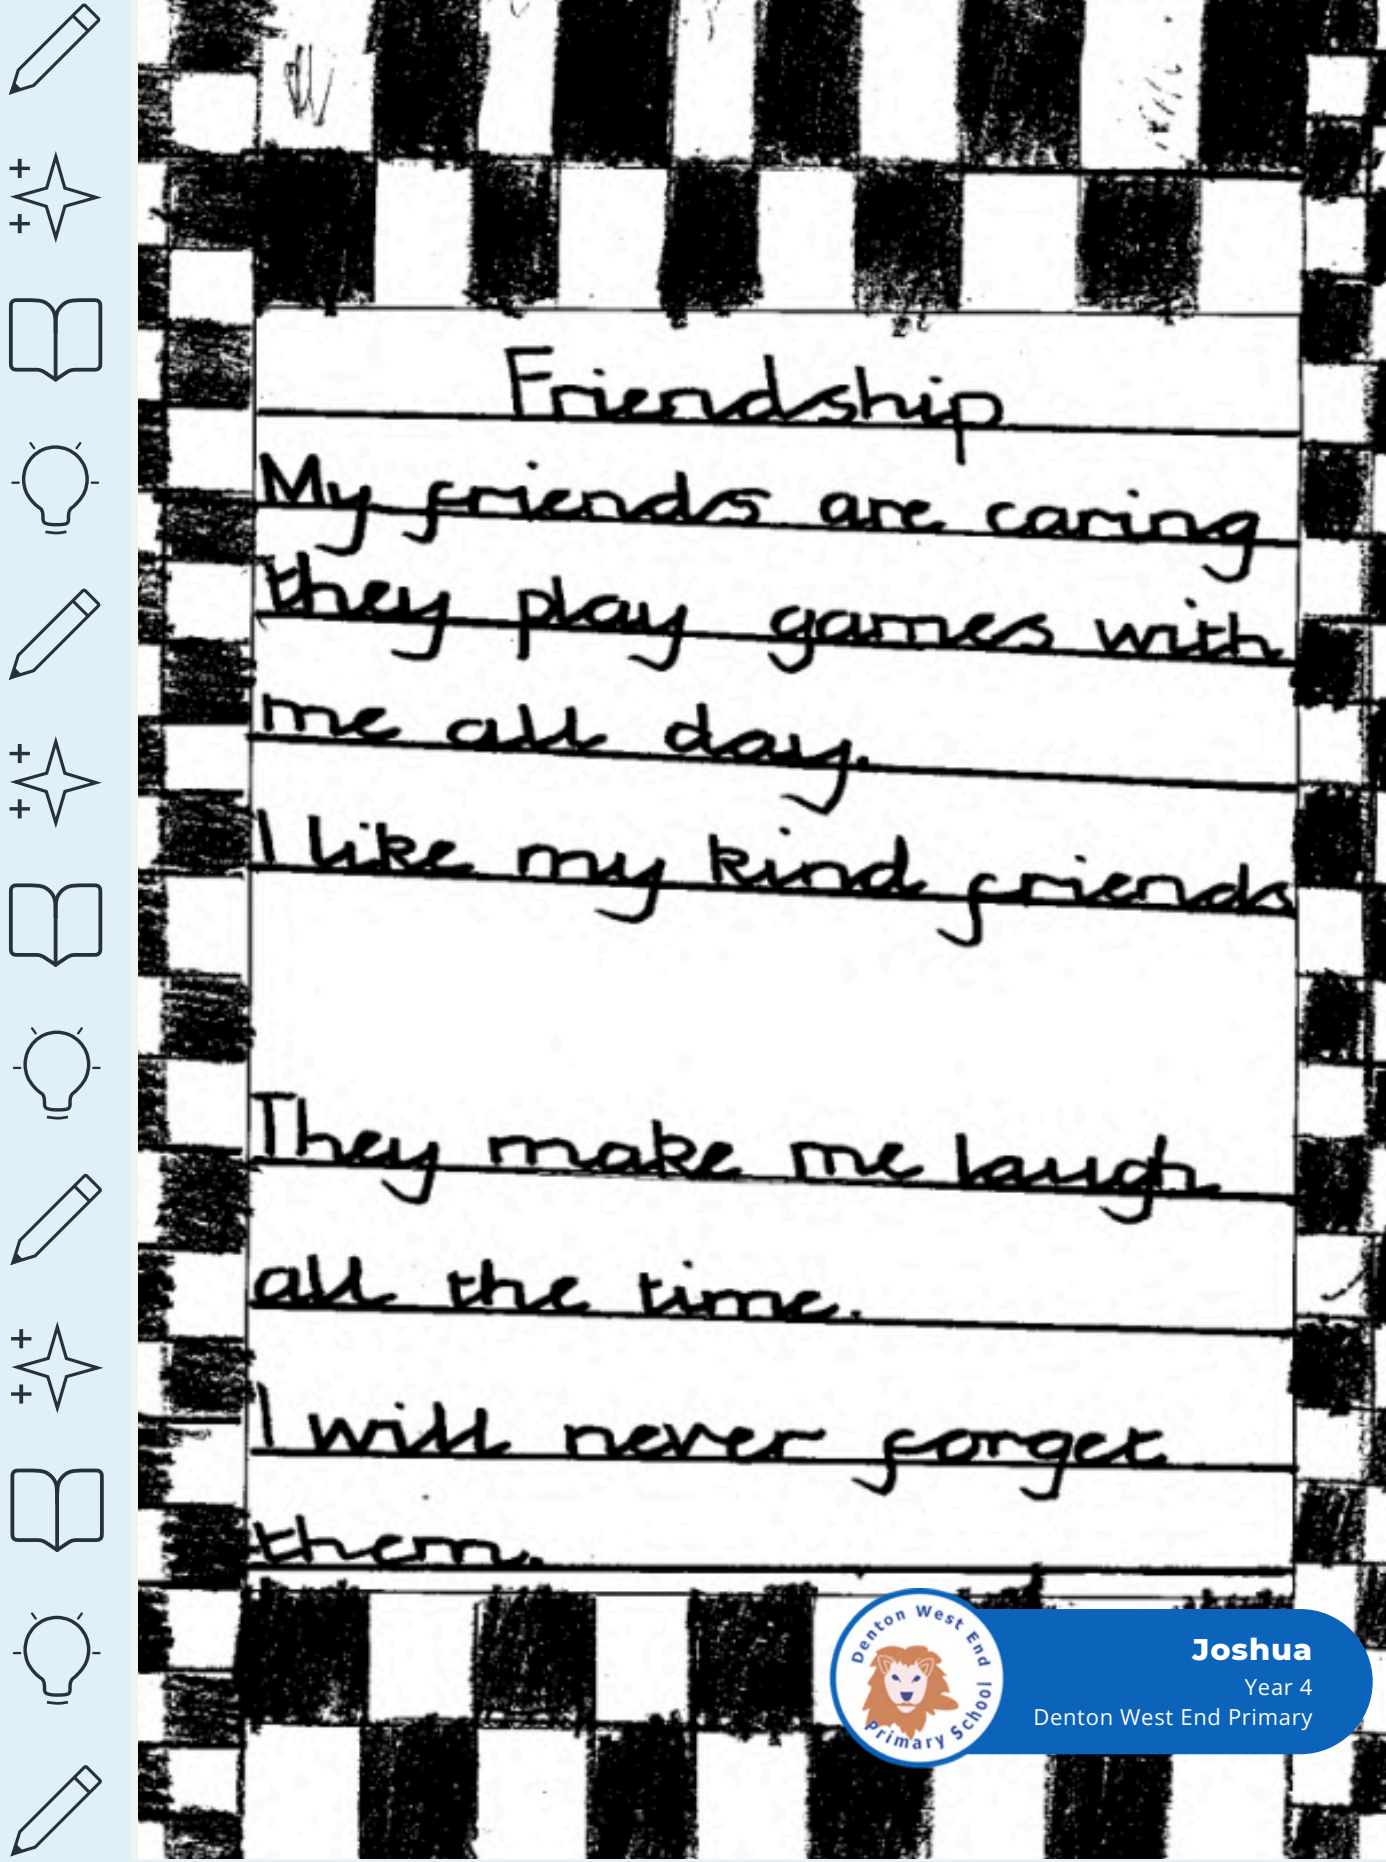 Friendship
My friends are caring
they play games with
me all day.
I like my kind friends
They make me laugh
all the time.
I will never forget
them.
Denton West End Primary School
Joshua
Year 4
Denton West End Primary